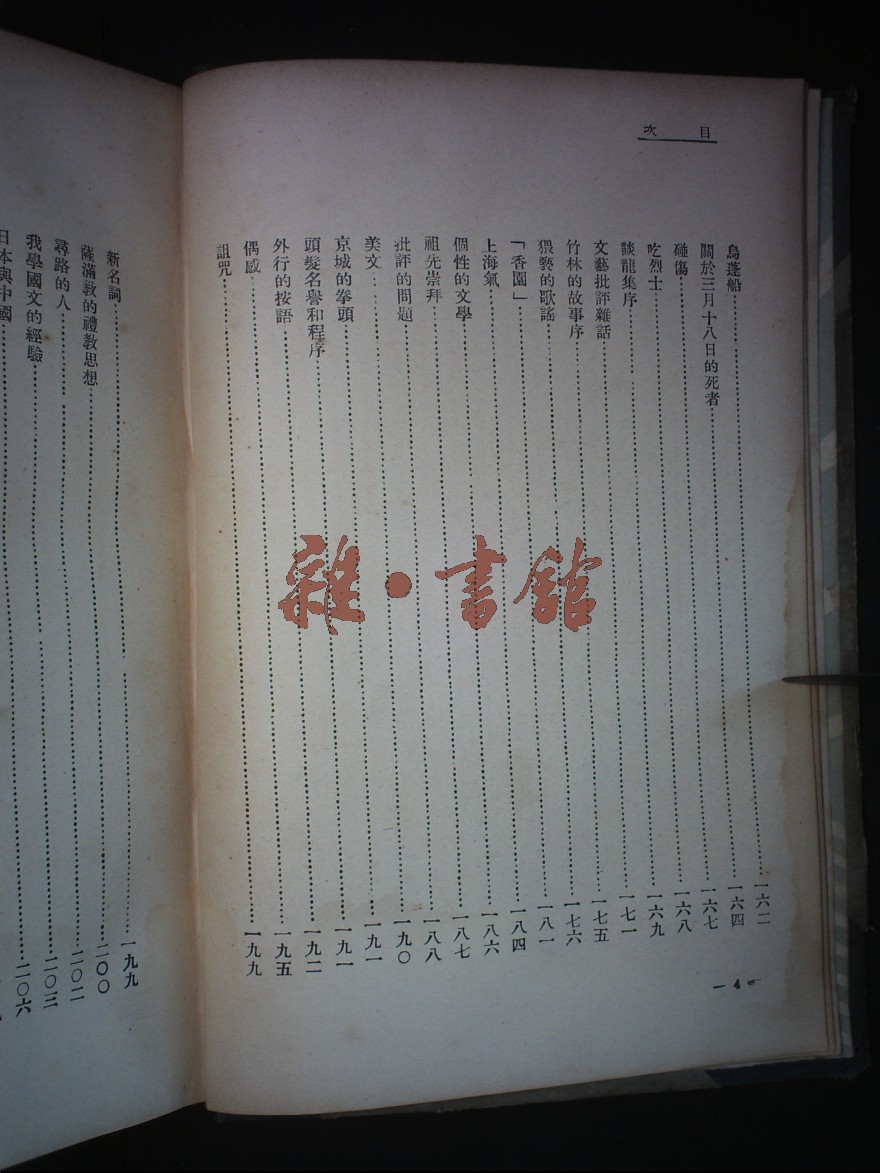 目次
烏蓬船……一六二
關於三月十八日的死者……一六四
碰傷……一六七
吃烈士……一六八
談龍集序……一六九
文藝批評雜話……一七一
竹林的故事序……一七五
猥褻的歌謠……一七六
「香園」……一八一
上海氣……一八四
個性的文學……一八六
祖先崇拜……一八七
批評的問題……一八八
美文……一九〇
京城的拳頭……一九一
頭髮名譽和程序……一九一
外行的按語……一九二
偶感……一九五
詛咒……一九九
— 4
新名詞……一九九
薩滿教的禮教思想……二〇〇
尋路的人……二〇二
我學國文的經驗……二〇三
日本與中國……二〇六
雜·書館